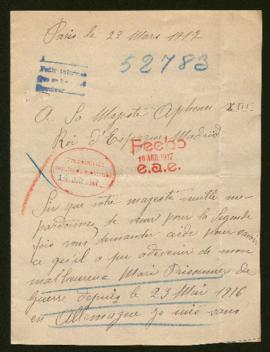 Paris le 29 Mars 1917
52783
A Sa Majesté Alphonse XIII
Roi d'Espagne Madrid
Fecho
16 ABR. 1917
e.a.e.
Sir que votre majesté veuille me
pardonner, je viens pour la segonde
fois vous demander aide pour
ce qu'il a pu advenir de mon
malheureux Mari Prisonnier de
Guerre depuis le 23 Mai 1916
en Allemagne je suis sans